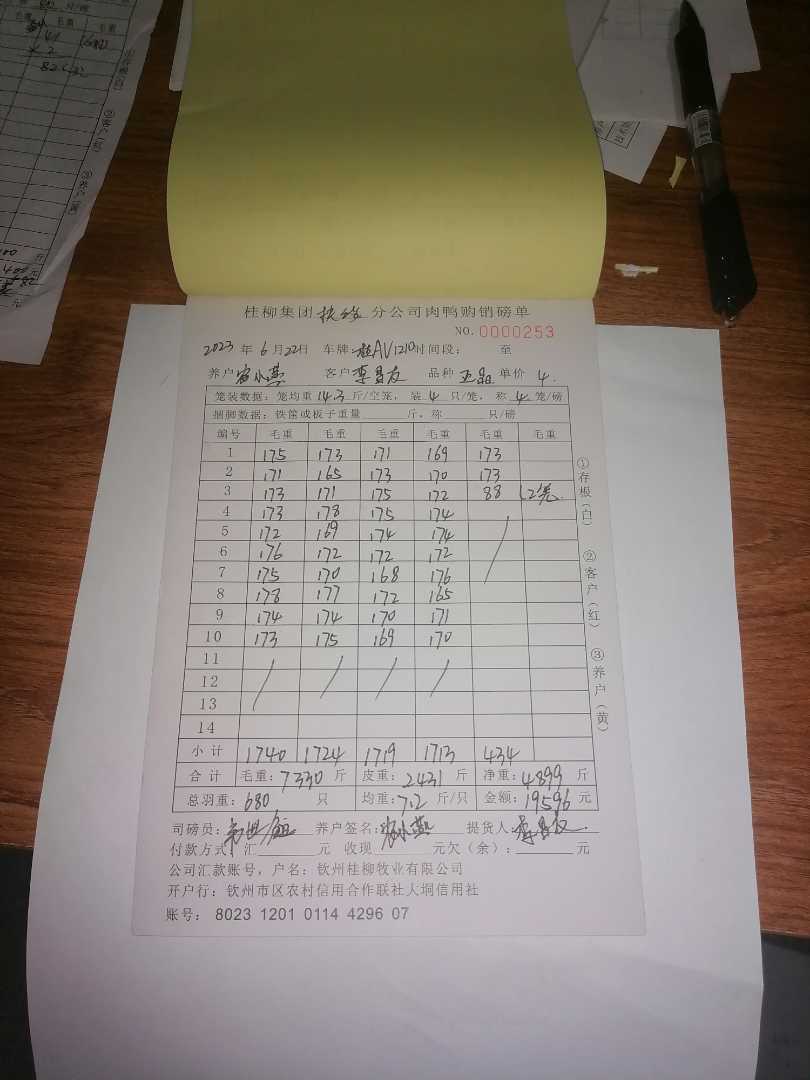 桂柳集团 分公司肉鸭购销磅单
NO.0000253
2023 年 6 月 22日 车牌: 桂AV1210 时间段: 至
养户 小燕 客户 李昌友 品种 单价 4.
笼装数据: 笼均重 14.3 斤/空笼, 装 4 只/笼, 称 4 笼/磅
捆脚数据: 铁筐或板子重量 斤, 称 只/磅
编号 毛重 毛重 毛重 毛重 毛重 毛重
1 175 173 171 169 173
2 171 165 173 170 173
3 173 171 175 172 88 (2笼)
4 173 178 175 174
5 172 169 174 174
6 176 172 172 172
7 175 170 168 176
8 178 177 172 165
9 174 174 170 171
10 173 175 169 170
11
12
13
14
小计 1740 1724 1719 1713 434
合计 毛重: 7330 斤 皮重: 2431 斤 净重: 4899 斤
总羽重: 680 只 均重: 7.2 斤/只 金额: 19596 元
司磅员: 养户签名: 小燕 提货人: 李昌友
付款方式: 汇 元 收现 元欠(余): 元
公司汇款账号, 户名: 钦州桂柳牧业有限公司
开户行: 钦州市区农村信用合作联社大垌信用社
账号: 8023 1201 0114 4296 07
①存根(白)
②客户(红)
③养户(黄)